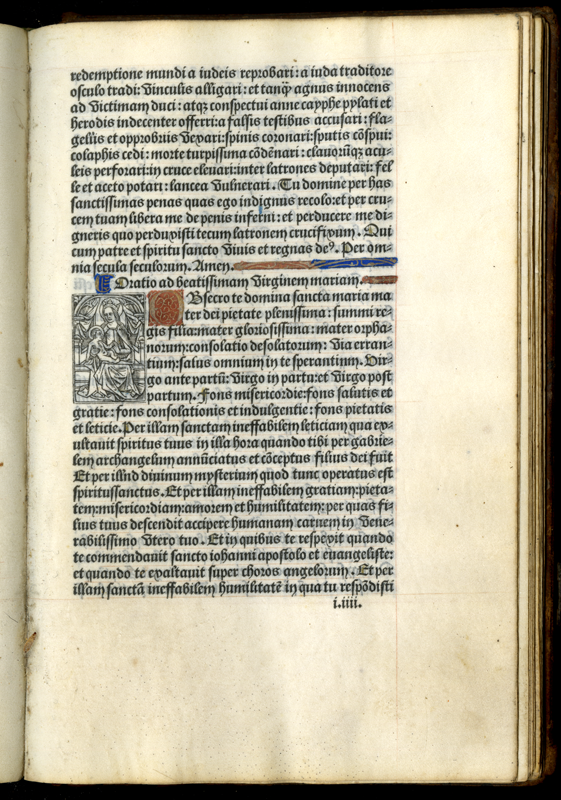 redemptione mundi a iudeis reprobari: a iuda traditore
osculo tradi: vinculis alligari: et tanq̃ agnus innocens
ad victimam duci: atqꝫ conspectui anne cayphe pylati et
herodis indecenter offerri: a falsis testibus accusari: fla⸗
gellis et opprobriis vexari: spinis coronari: sputis cõspui:
colaphis cedi: morte turpissima cõdẽnari: clauorũqꝫ acu⸗
leis perforari: in cruce eleuari: inter latrones deputari: fel
le et aceto potari: lancea vulnerari. Tu domine per has
sanctissimas penas quas ego indignus recolo: et per cru⸗
cem tuam libera me de penis inferni: et perducere me di⸗
gneris quo perduxisti tecum latronem crucifixum. Qui
cum patre et spiritu sancto viuis et regnas deꝰ. Per om⸗
nia secula seculorum. Amen.
Oratio ad beatissimam virginem mariam.
Obsecro te domina sancta maria ma
ter dei pietate plenissima: summi re⸗
gis filia: mater gloriosissima: mater orpha
norum: consolatio desolatorum: via erran⸗
tium: salus omnium in te sperantium. Vir⸗
go ante partũ: virgo in partu: et virgo post
partum. Fons misericordie: fons salutis et
gratie: fons consolationis et indulgentie: fons pietatis
et leticie. Per illam sanctam ineffabilem leticiam qua ex⸗
ultauit spiritus tuus in illa hora quando tibi per gabrie⸗
lem archangelum annũciatus et cõceptus filius dei fuit
Et per illud diuinum mysterium quod tunc operatus est
spiritussanctus. Et per illam ineffabilem gratiam: pieta⸗
tem: misericordiam: amorem et humilitatem: per quas fi⸗
lius tuus descendit accipere humanam carnem in vene⸗
rabilissimo vtero tuo. Et in quibus te respexit quando
te commendauit sancto iohanni apostolo et euangeliste:
et quando te exaltauit super choros angelorum. Et per
illam sanctã ineffabilem humilitatẽ in qua tu respõdisti
i.iiii.